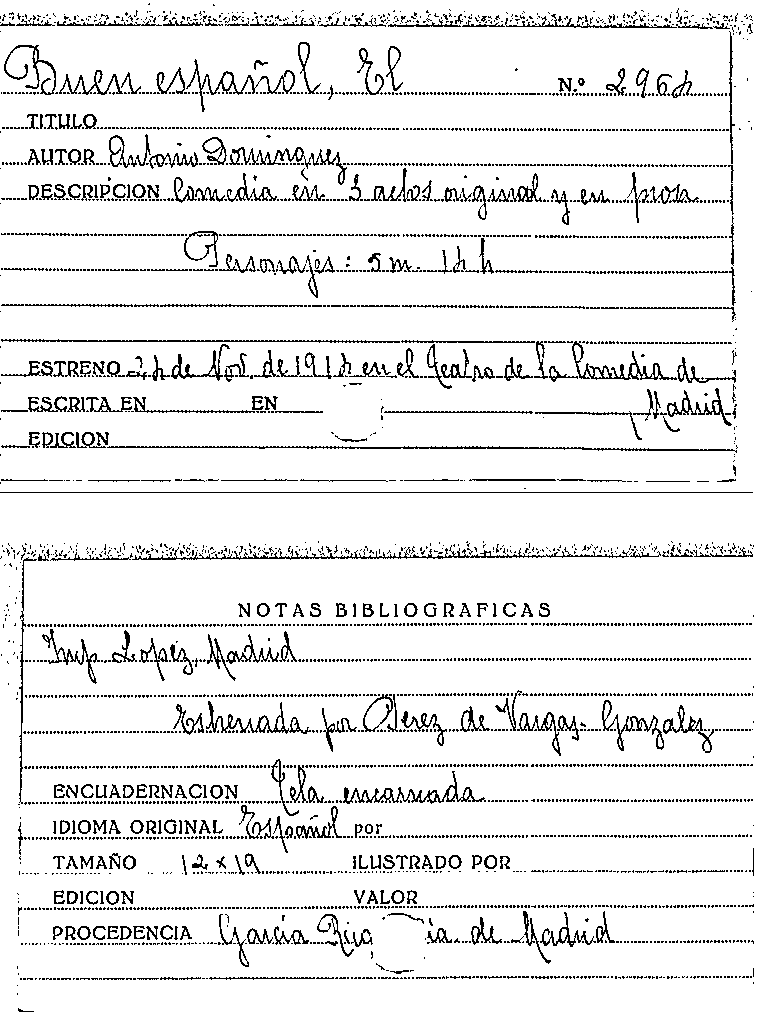 Buen español, El Nº 2964
TITULO
AUTOR Antonio Dominguez
DESCRIPCION Comedia en 3 actos original y en prosa
Personajes: 5 m. 14 h
ESTRENO 24 de Nov. de 1914 en el Teatro de la Comedia de
ESCRITA EN EN Madrid
EDICION
NOTAS BIBLIOGRAFICAS
Imp Lopez, Madrid
Estrenada por Perez de Vargas-Gonzalez
ENCUADERNACION Tela encarnada
IDIOMA ORIGINAL Español por
TAMAÑO 12 x 19 ILUSTRADO POR
EDICION VALOR
PROCEDENCIA García Rico ia. de Madrid